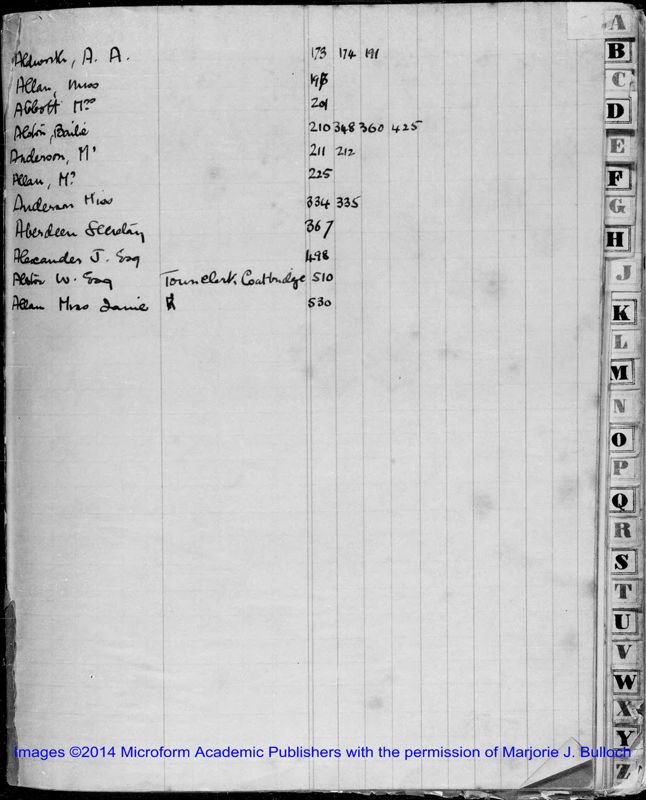 Aldworth, A. A. 173 174 191
Allan, Miss
Abbott Mrs 201
Alston, Bailie 210 348 360 425
Anderson, Mr 211 212
Allan, Mr 225
Anderson Miss 334 335
Aberdeen Secretary 367
Alexander J. Esq 498
Alston W. Esq Town Clerk. Coatbridge 510
Allan Miss Janie 530
A
B
C
D
E
F
G
H
J
K
L
M
N
O
P
Q
R
S
T
U
V
W
X
Y
Z
Images ©2014 Microform Academic Publishers with the permission of Marjorie J. Bulloch